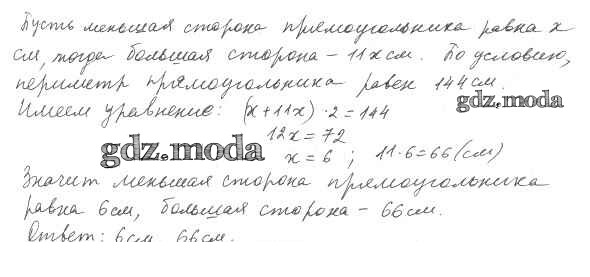 Пусть меньшая сторона прямоугольника равна x
см, тогда большая сторона - 11x см. По условию,
периметр прямоугольника равен 144 см.
gdz.moda
Имеем уравнение: (x+11x)·2=144
12x=72
gdz.moda
x=6 ; 11·6=66(см)
Значит меньшая сторона прямоугольника
равна 6см, большая сторона - 66см.
Ответ: 6см, 66см.